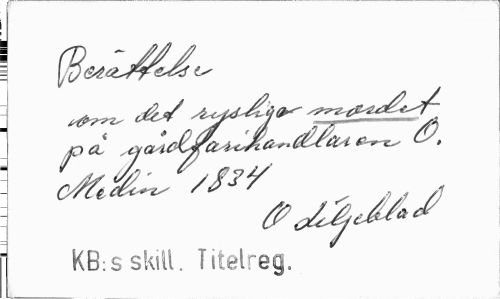 Berättelse
om det rysliga mordet
på gårdfarihandlaren O.
Medin 1834
O Liljeblad
KB:s skill. Titelreg.